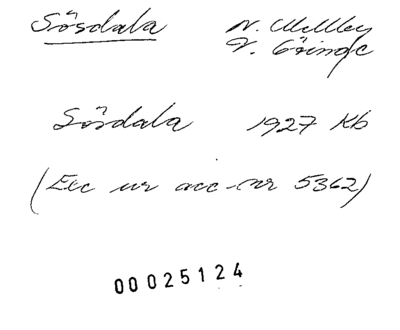 Sösdala N. Mellby
V. Göinge
Sösdala 1927 Kb
(Exc ur acc-nr 5362)
00025124